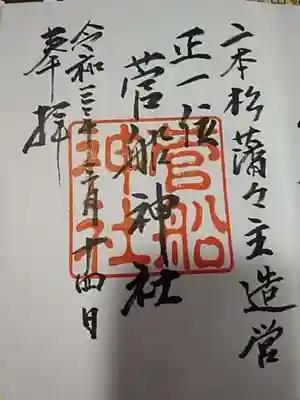 二本松藩々主造営
正一位
菅船神社
菅船
神社
令和三年三月十四日
奉拝